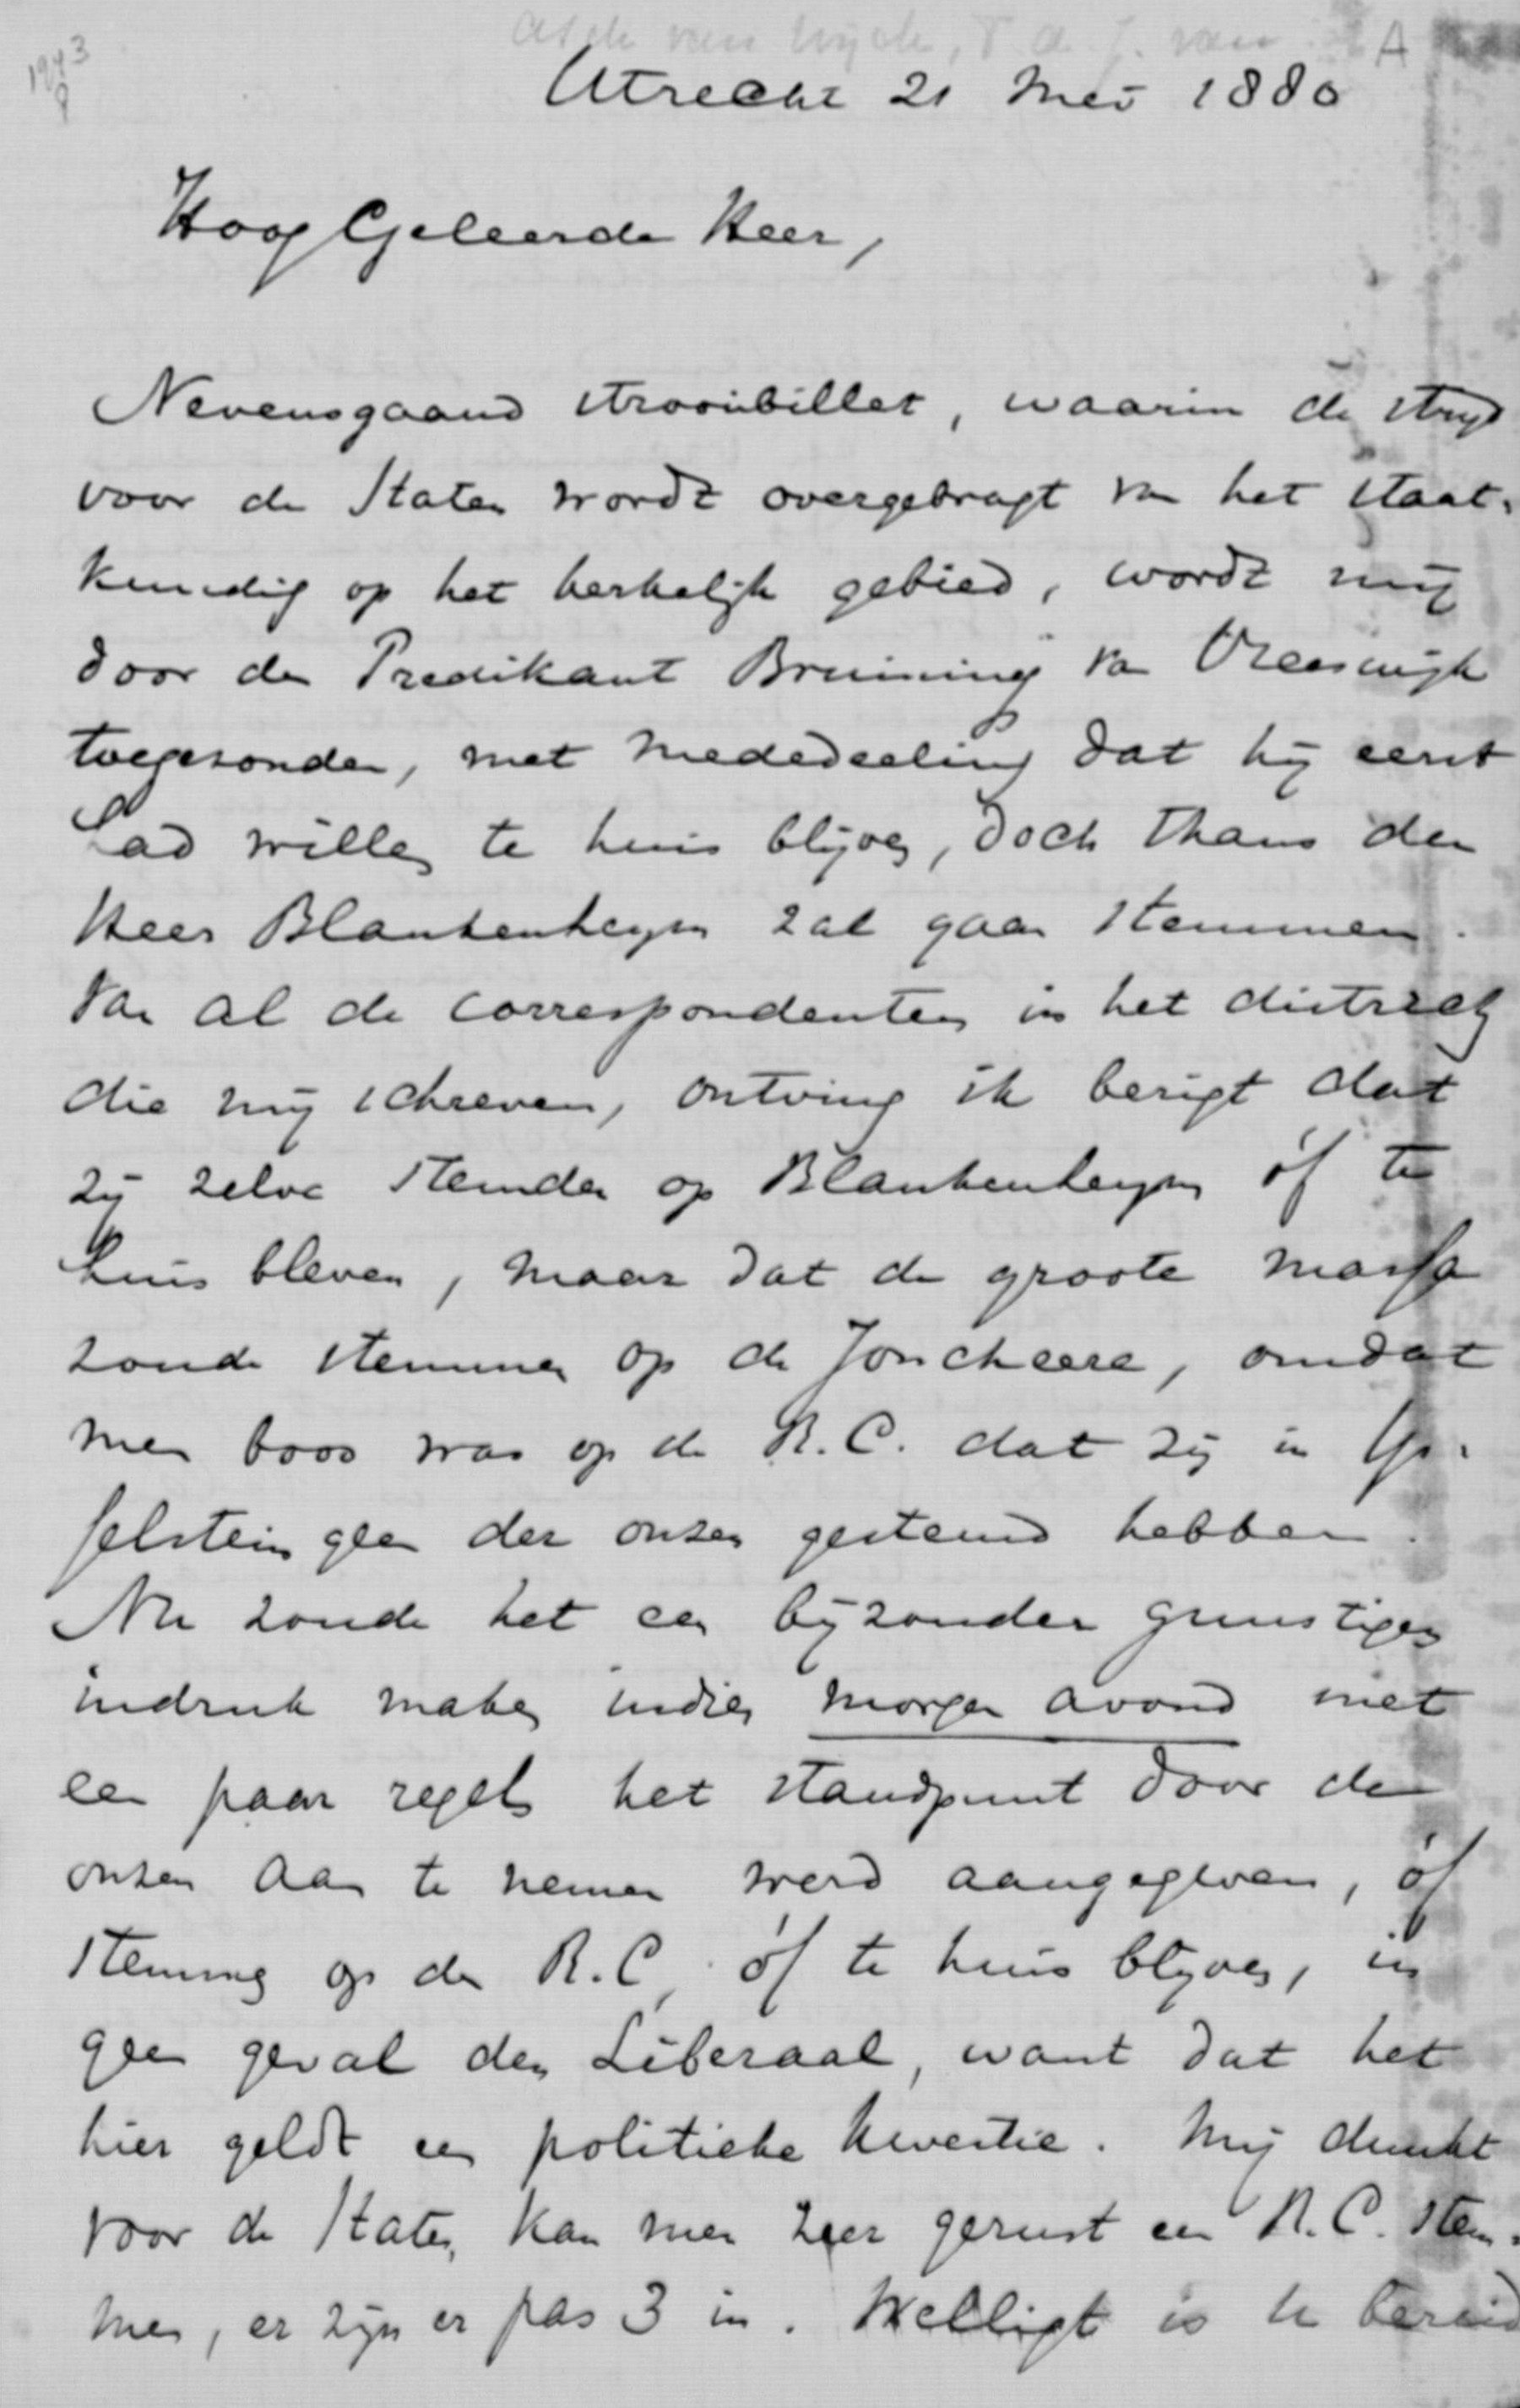 1943
9
A
Utrecht 21 Mei 1880
HoogGeleerde Heer,
Nevensgaand strooibillet, waarin de stryd
voor de Staten wordt overgebragt van het staat-
kundig op het kerkelijk gebied, wordt mij
door den Predikant Bruining van Vreeswijk
toegezonden, met mededeeling dat hij eerst
had willen te huis blijven, doch thans den
Heer Blankenheym zal gaan stemmen.
Van al de correspondenten in het district,
die mij schreven, ontving ik berigt dat
zij zelve stemden op Blankenheym óf te
huis bleven, maar dat de groote massa
zoude stemmen op de Joncheere, omdat
men boos was op de R.C. dat zij in IJs-
selstein geen der onzen gestemd hebben.
Nu zoude het een byzonder gunstigen
indruk maken indien morgen avond met
een paar regels het standpunt door de
onzen aan te nemen werd aangegeven, óf
stemming op den R.C, óf te huis blyven, in
geen geval den Liberaal, want dat het
hier geldt een politieke kwestie. Mij dunkt
voor de Staten, kan men zeer gerust een R.C. stem-
men, er zijn er pas 3 in. Welligt is U bereid